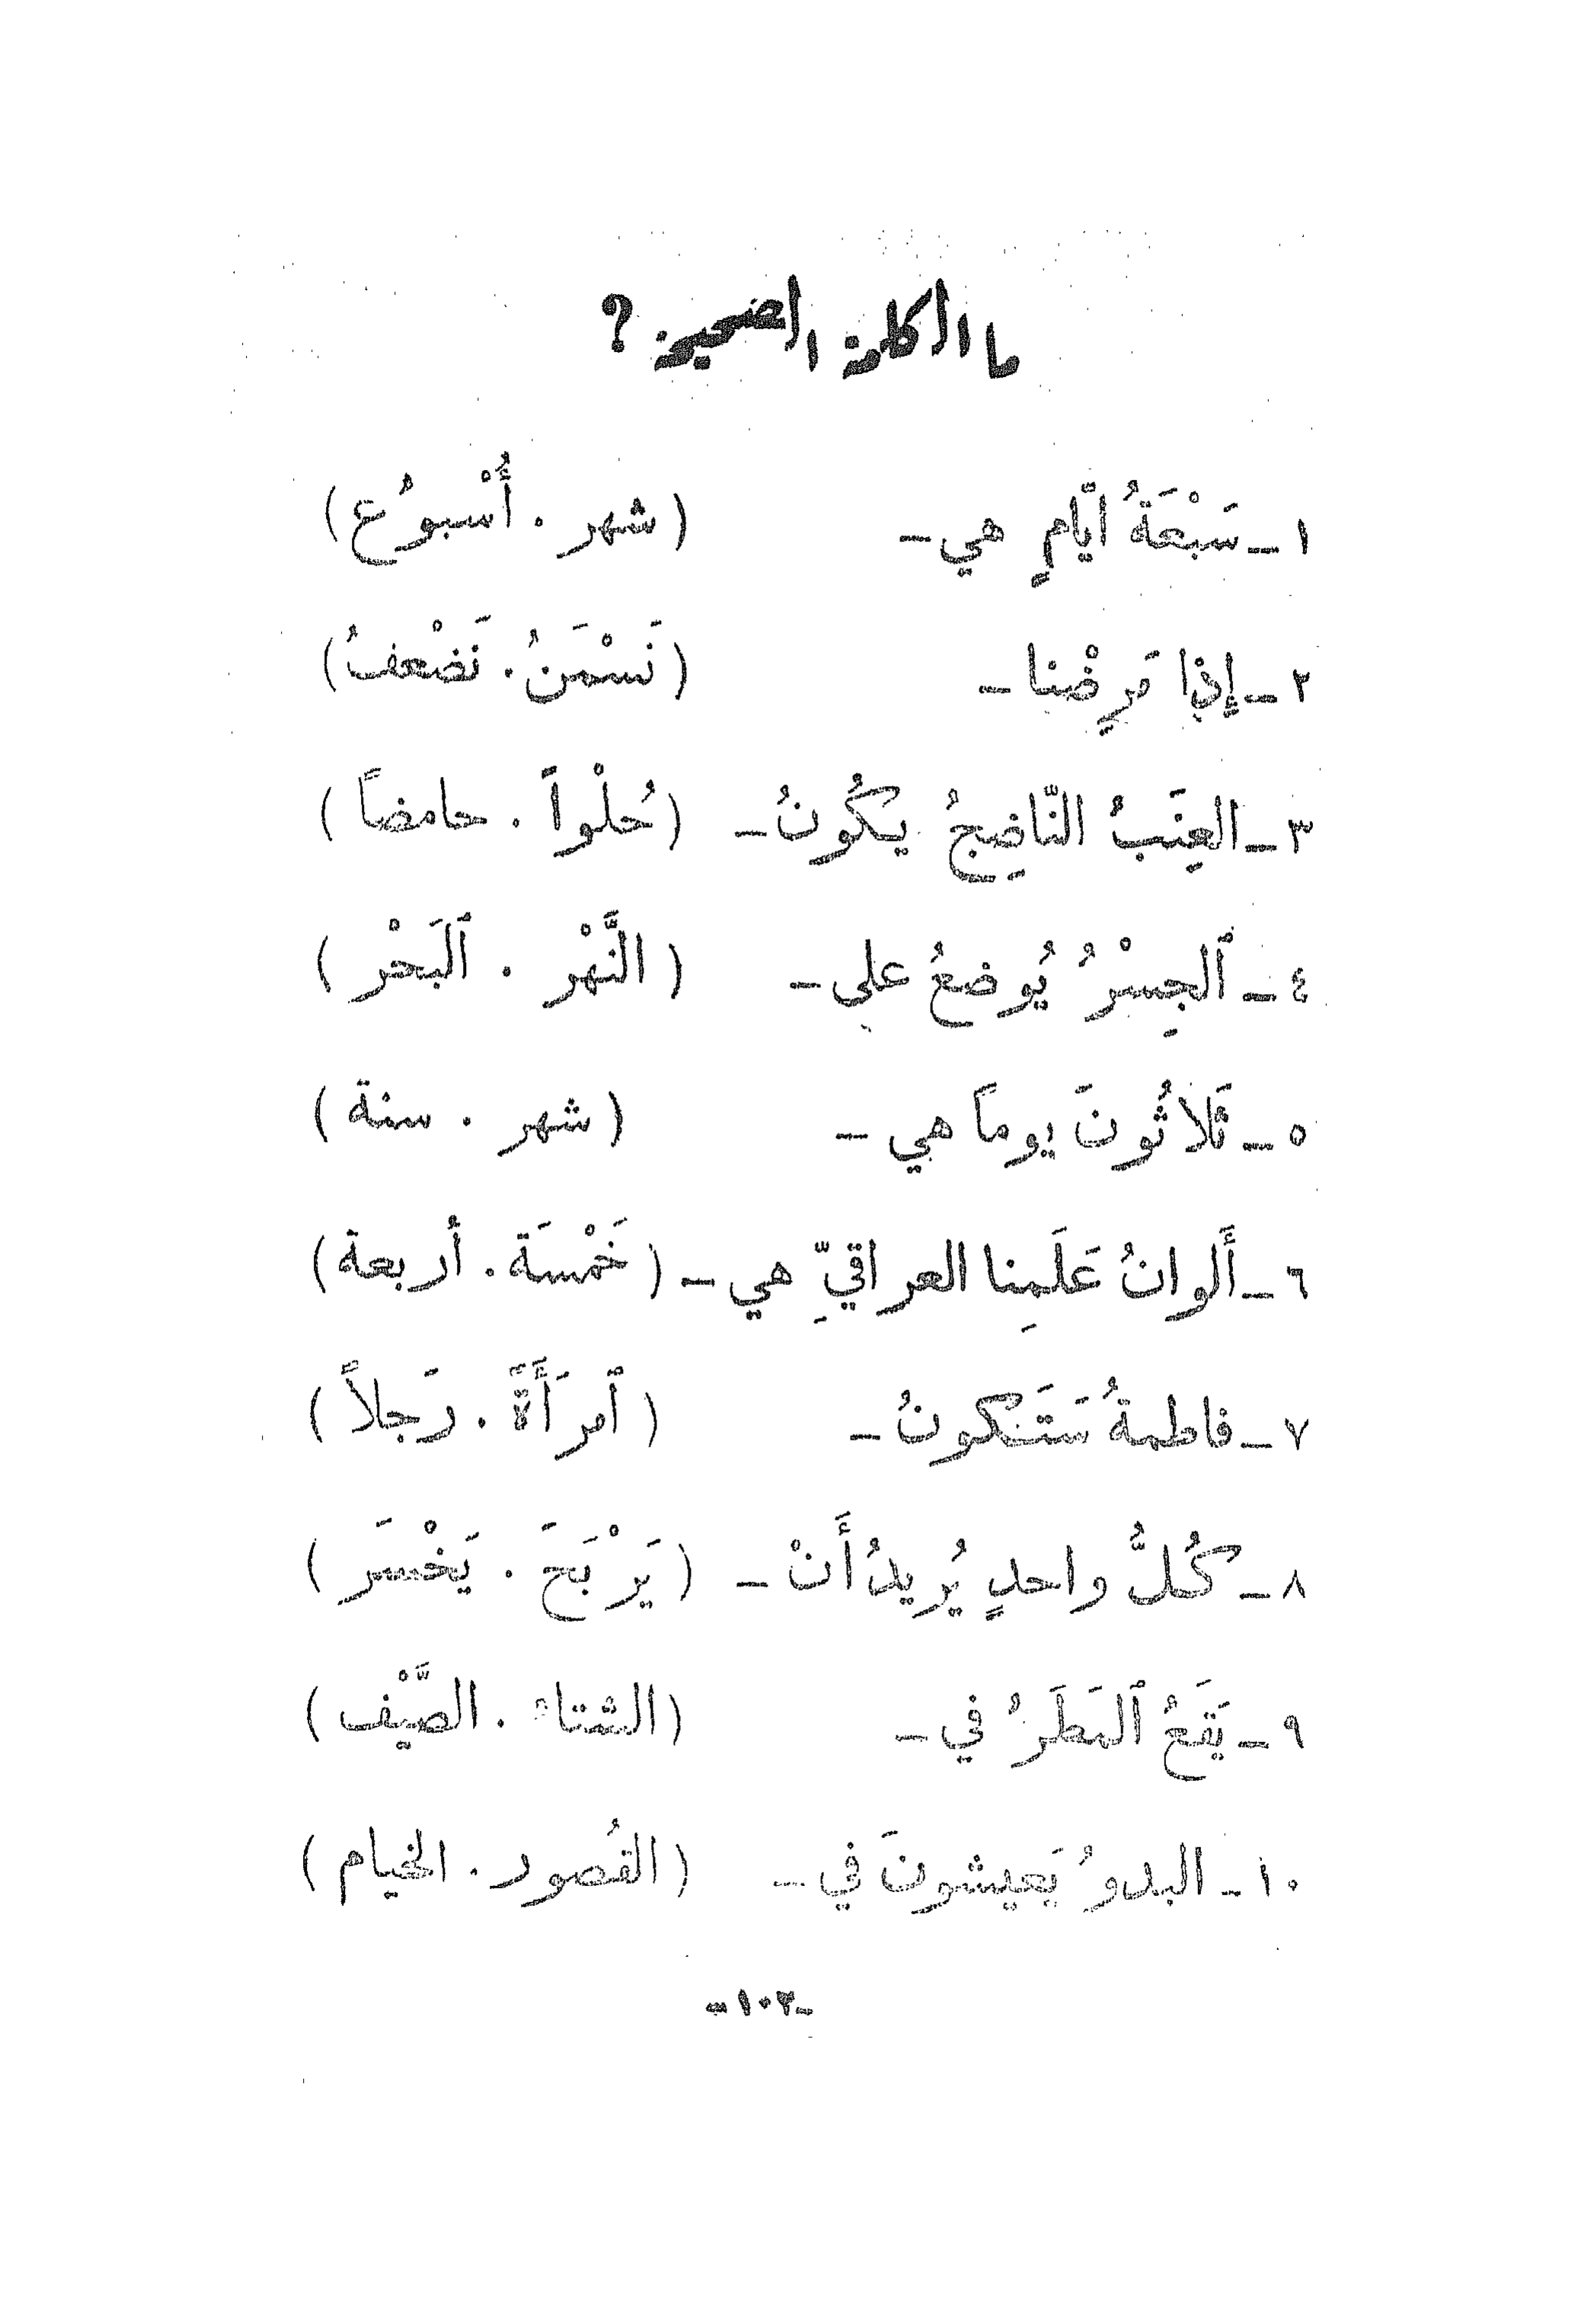 ما الكلمة الصحيحة ؟
١ــ سَبْعَةُ ايّامٍ هي ــ (شهر . أُسْبوُع)
٢ــ إِذْا مَرِضْنا ــ (نَسْمَنُ . نَضْعفُ)
٣ــ العِنَبُ النّاضِجُ يَكُونُ ــ (حُلْواً . حامضاً)
٤ــ ٱلجِسْرُ يُوضعُ على ــ (النَّهْر . ٱلبَحْر)
٥ــ ثَلاثُونَ يوماً هي ــ (شهر . سنة)
٦ــ أَلوانُ عَلَمِنا العراقيِّ هي ــ (خَمْسَة . أربعة)
٧ــ فاطمةُ سَتَكونُ ــ (ٱمرَأَةً . رَجلاً)
٨ــ كُلُّ واحدٍ يُريدُ أَنْ ــ (يَرْبَحَ . يَخْسَر)
٩ــ يَقَعُ ٱلمَطَرُ في ــ (الشتاء . الصَّيْف)
١٠ــ البدوُ يَعيشونَ في ــ (القُصور . الخيام)
-١٠٢-